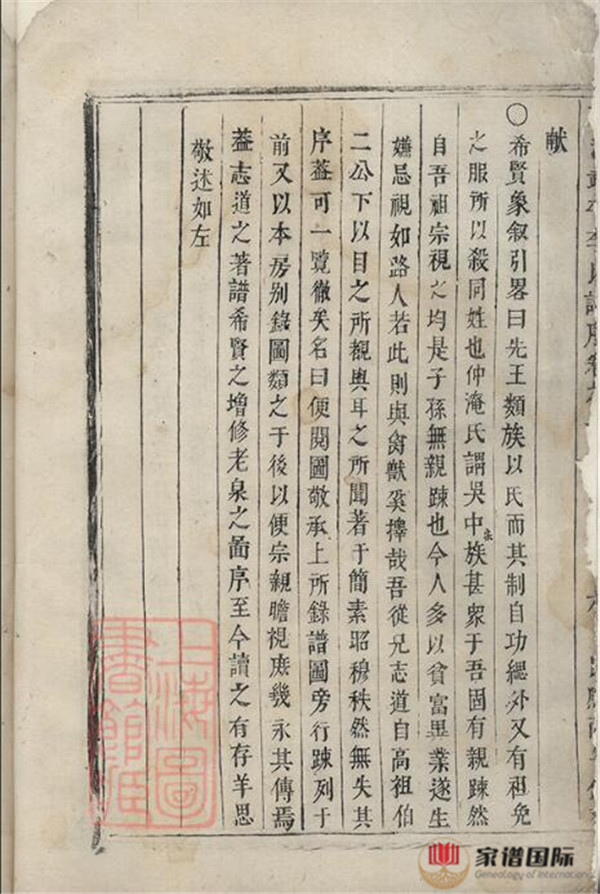 獻
○希賢象叙引畧曰先王類族以氏而其制自功緦外又有袒免
之服所以殺同姓也仲淹氏謂吳中宗族甚眾于吾固有親踈然
自吾祖宗視之均是子孫無親踈也今人多以貧富異業遂生
嫌忌視如路人若此則與禽獸奚擇哉吾從兄志道自高祖伯
二公下以目之所觀與耳之所聞著于簡素昭穆秩然無失其
序葢可一覽徹矣名曰便閱圖敬承上所錄譜圖旁行踈列于
前又以本房别錄圖類之于後以便宗親瞻視庶幾永其傳焉
葢志道之著譜希賢之增修老泉之啚序至今讀之有存羊思
敬述如左
上海圖書館藏
家谱国际
Genealogy of International